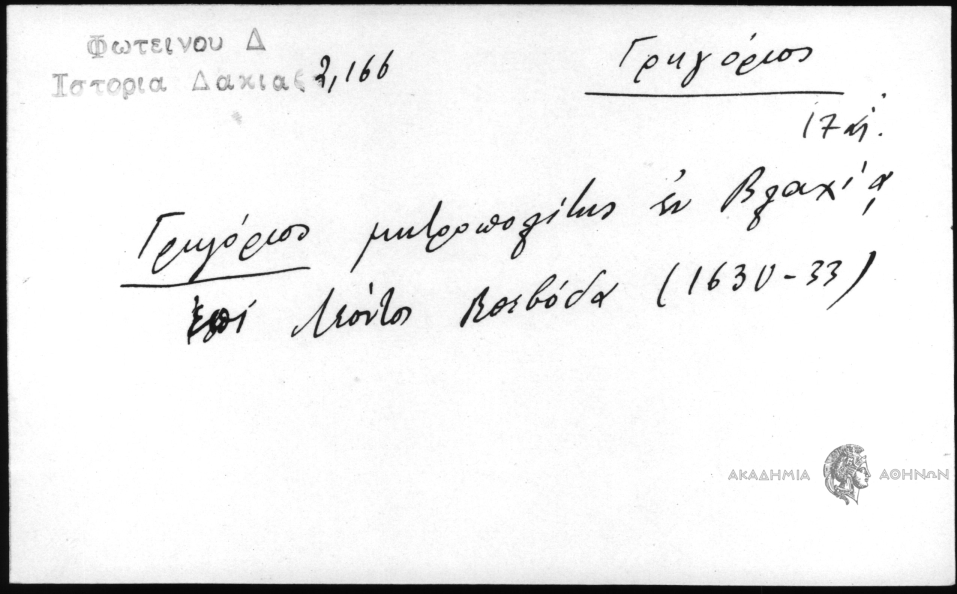 Φωτεινου Δ
Ιστορια Δακιας 2,166
Γρηγόριος
17 αἰ.
Γρηγόριος μητροπολίτης ἐν Βλαχίᾳ
ἐπί Λέοντος Βοεβόδα (1630-33)
ΑΚΑΔΗΜΙΑ ΑΘΗΝΩΝ